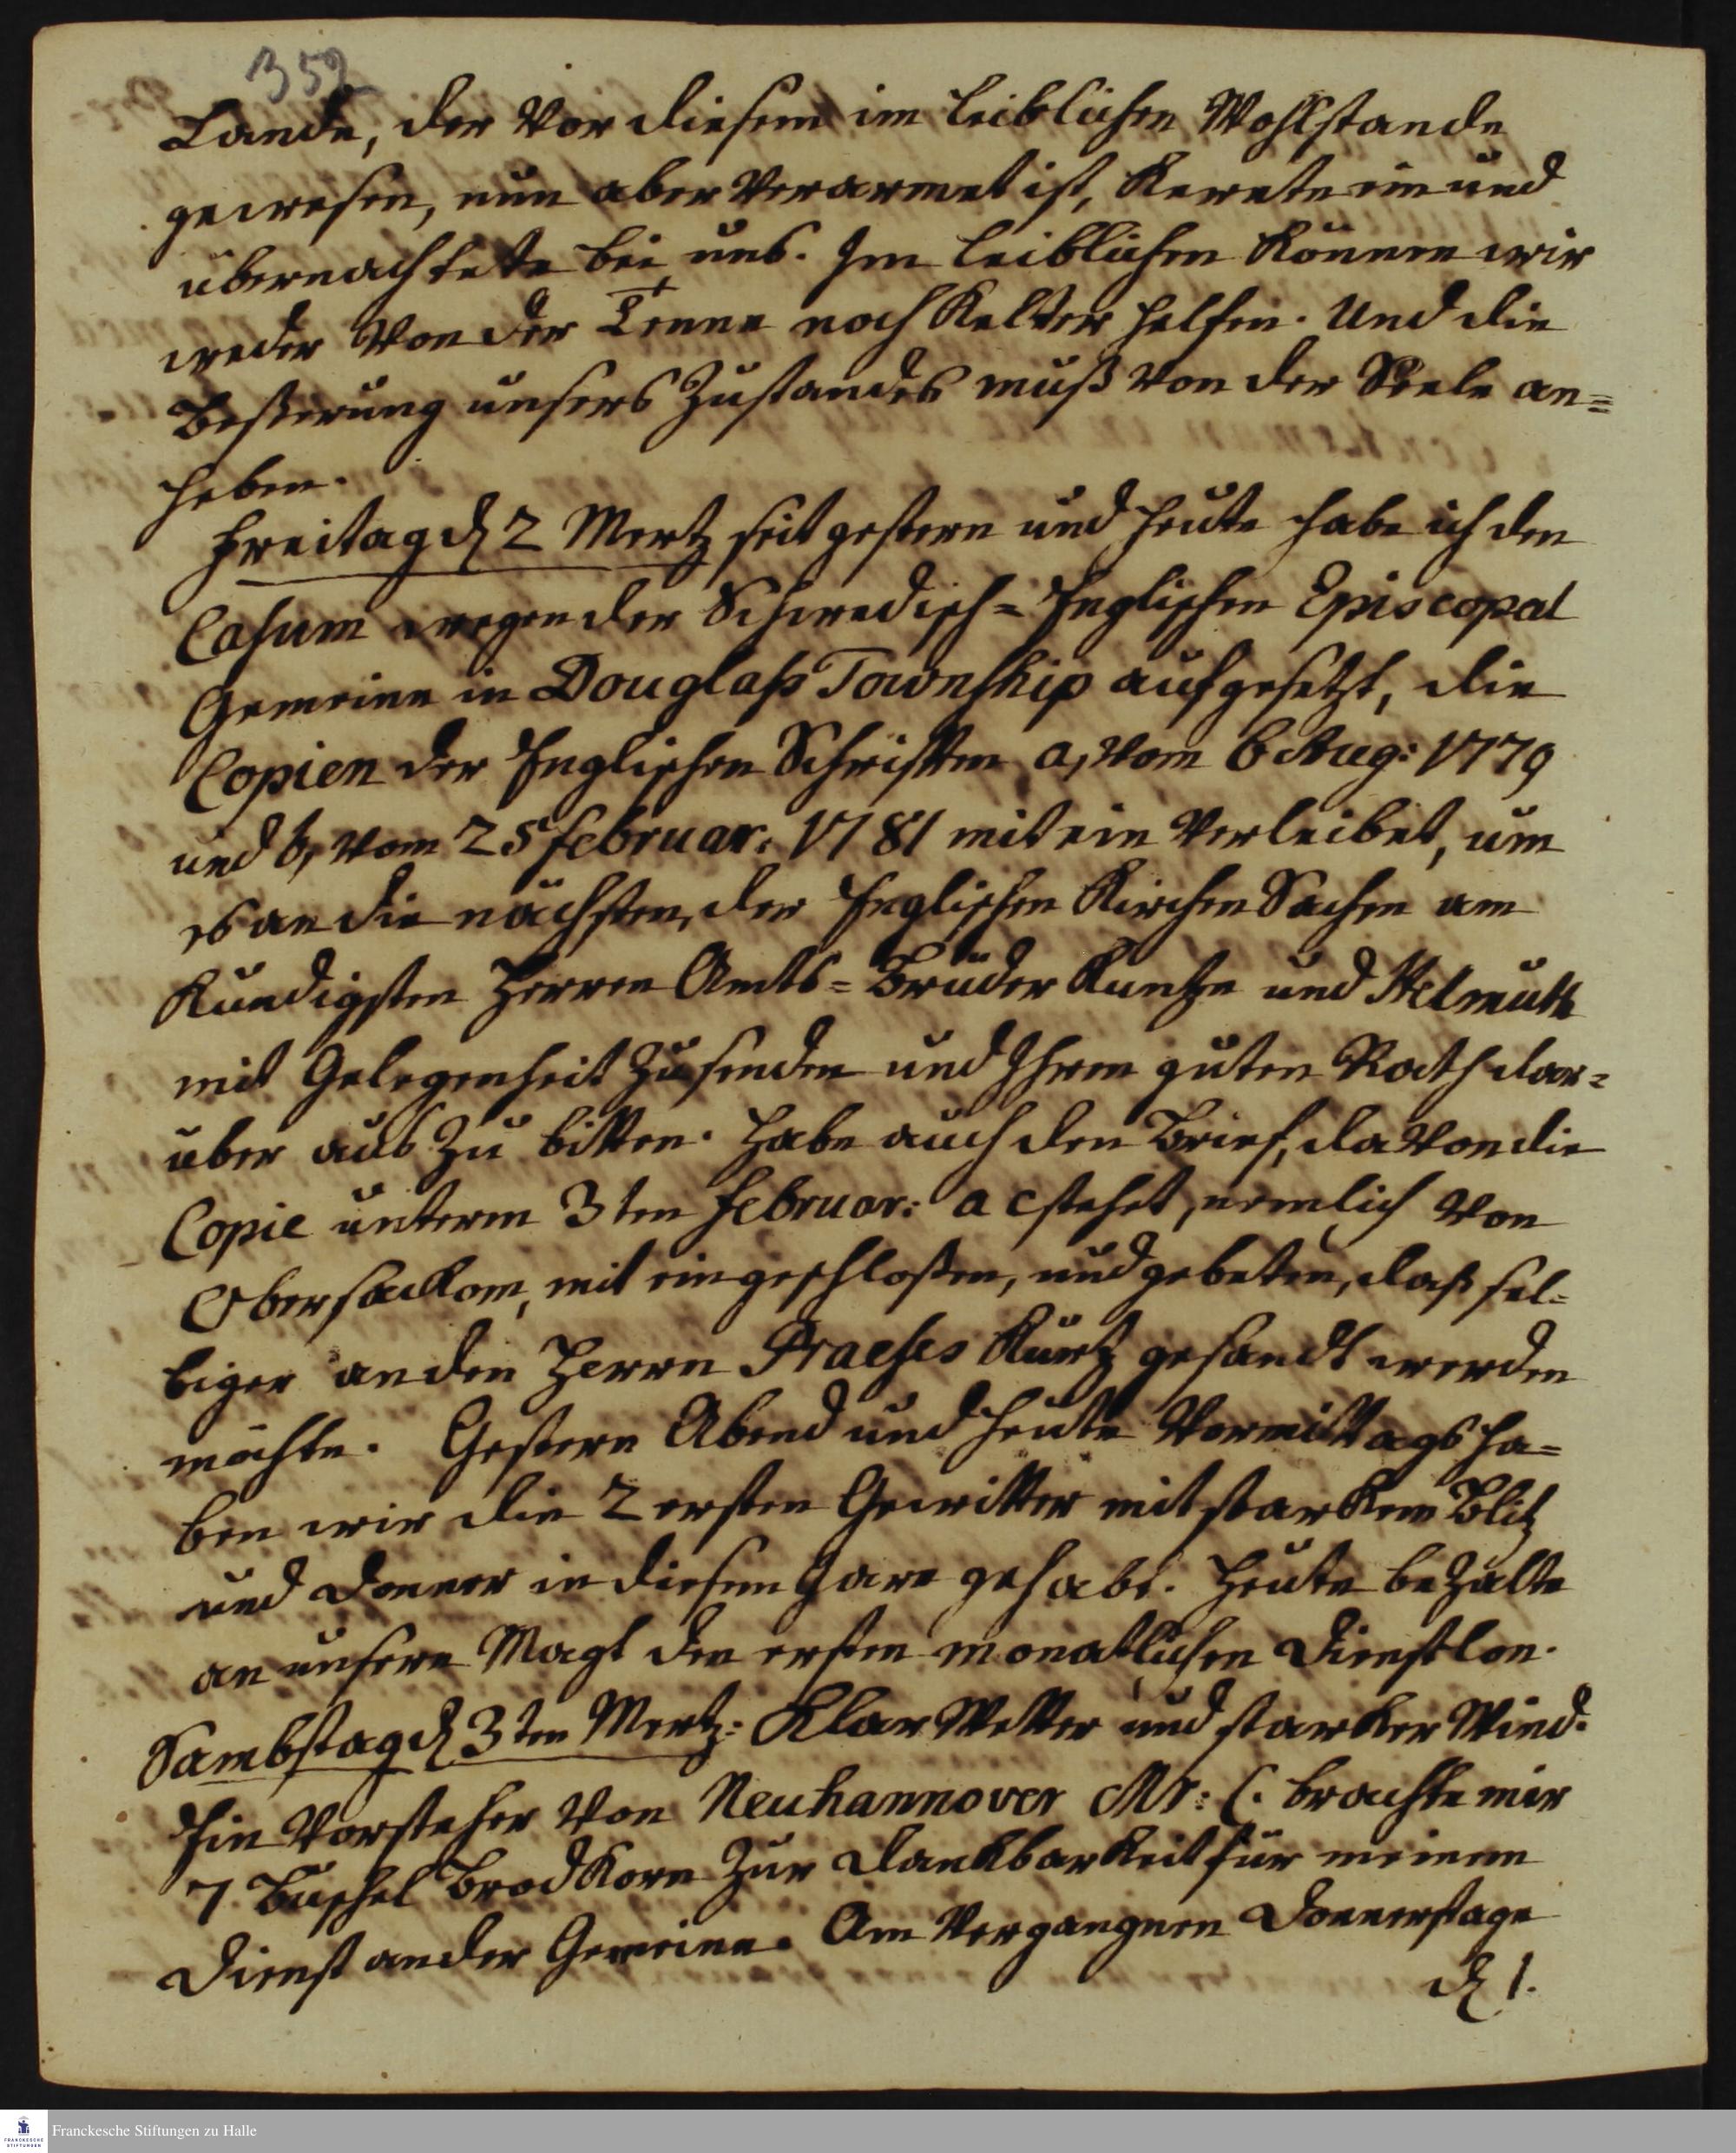 352
Lande, der vor diesem im leiblichen Wohlstande
gewesen, nun aber verarmet ist, kerete ein und
übernachtete bei uns. Im leiblichen können wir
weder von der Tenne noch Kelter helfen. Und die
Beßerung unsers Zustandes muß von der Seele an=
heben.
Freitag d 2 Mertz seit gestern und heute habe ich den
Casum wegen der Schwedisch=Englischen Episcopal
Gemeine in Douglass Township aufgesetzt, die
Copien der Englischen Schriften a, vom 6 Aug: 1779
und b, vom 25 Februar: 1781 mit ein verleibet, um
es an die nächsten, der Englischen Kirchen Sachen am
kundigsten Herren Amts=Brüder Kuntze und Helmuth
mit Gelegenheit zu senden und Ihren guten Rath dar=
über aus zu bitten. Habe auch den Brief, davon die
Copie unterm 3ten Februar: a c stehet, nemlich von
Obersackom, mit eingeschloßen, und gebeten, daß sel=
biger an den Herrn Praeses Kurtz gesandt werden
möchte. Gestern Abend und heute Vormittags ha=
ben wir die 2 ersten Gewitter mit starkem Blitz
und Donner in diesem Jare gehabt. Heute bezalte
an unsere Magt den ersten monatlichen Dienstlon.
Sambstag d 3ten Mertz: Klar Wetter und starker Wind.
Ein Vorsteher von Neuhannover Mr: C. brachte mir
7 Buschel Brodkorn zur Dankbarkeit für meinen
Dienst an der Gemeine. Am vergangnen Donnerstage
d 1.
Franckesche Stiftungen zu Halle
FRANCKESCHE
STIFTUNGEN